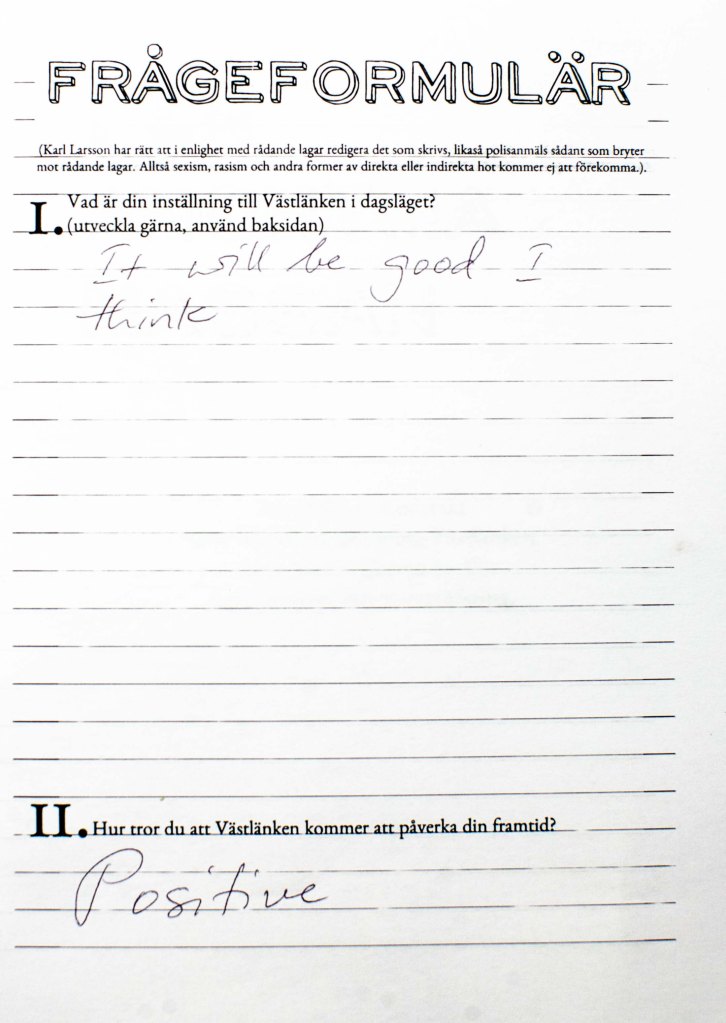 FRÅGEFORMULÄR
(Karl Larsson har rätt att i enlighet med rådande lagar redigera det som skrivs, likaså polisanmäls sådant som bryter
mot rådande lagar. Alltså sexism, rasism och andra former av direkta eller indirekta hot kommer ej att förekomma.).
I. Vad är din inställning till Västlänken i dagsläget?
(utveckla gärna, använd baksidan)
It will be good I
think
II. Hur tror du att Västlänken kommer att påverka din framtid?
Positive